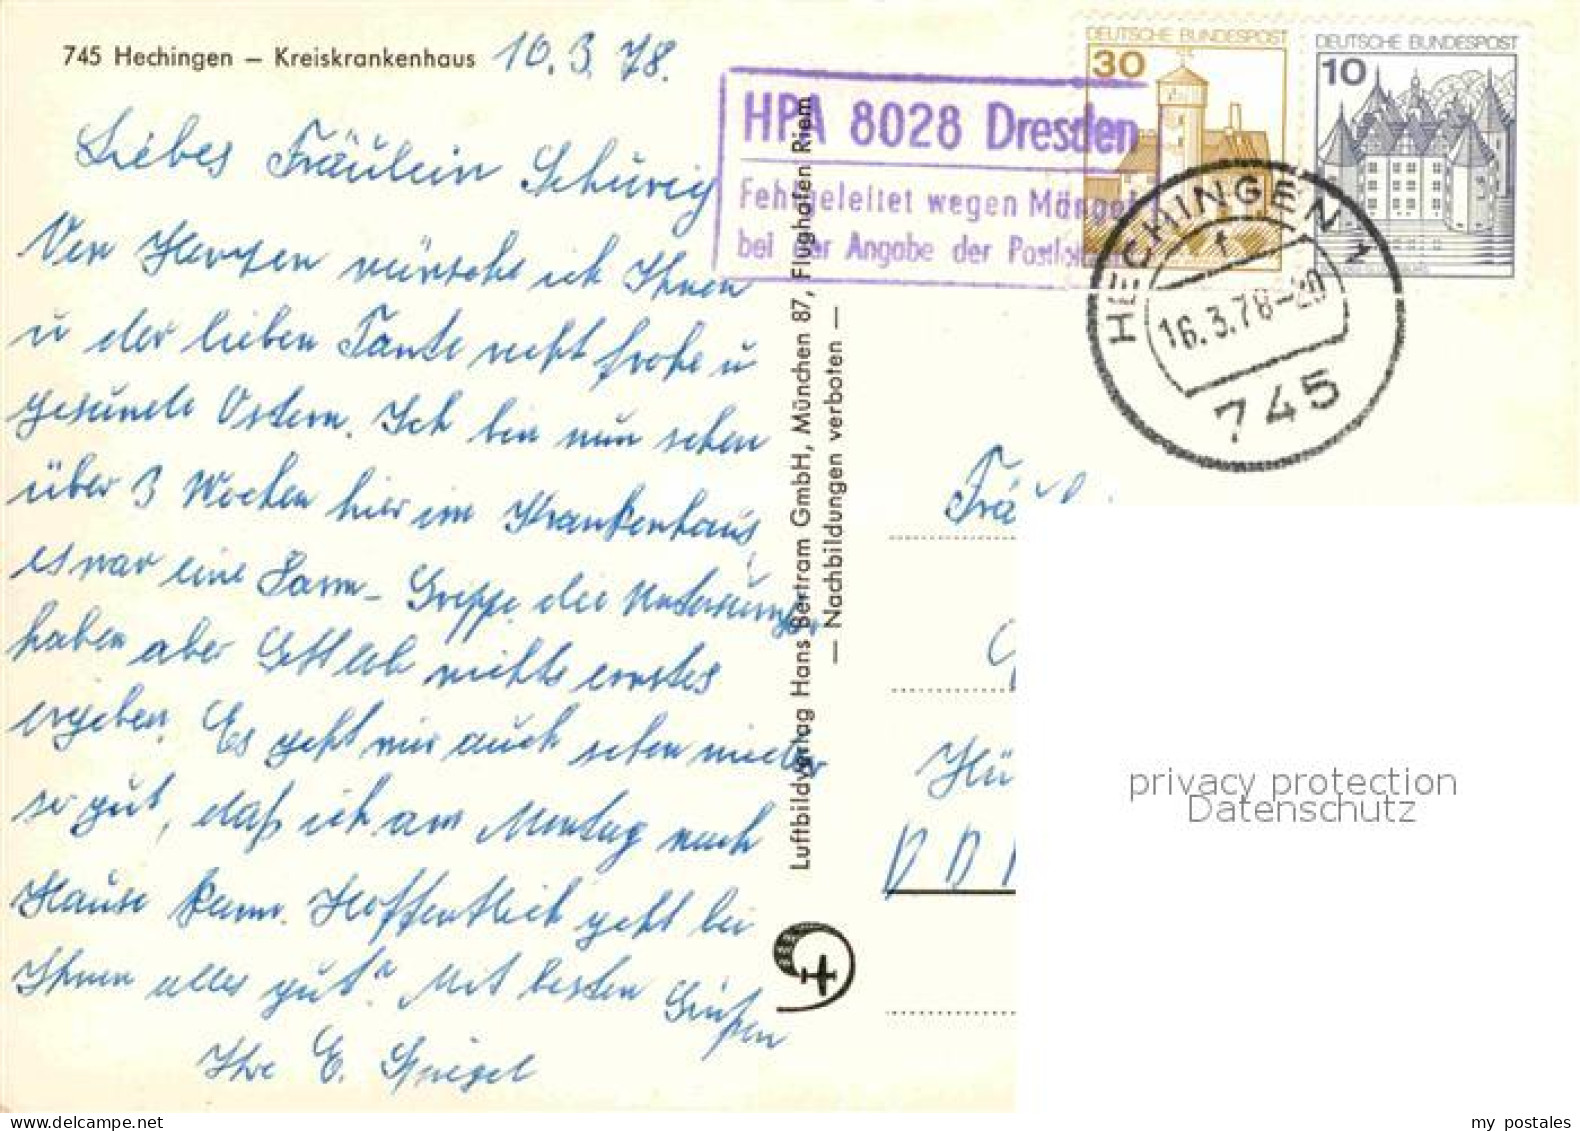 745 Hechingen – Kreiskrankenhaus 10.3.78.
Liebes Fräulein Schurig
Von Herzen wünsche ich Ihnen
u der lieben Tante recht frohe u
gesunde Ostern. Ich bin nun schon
über 3 Wochen hier im Krankenhaus,
es war eine Darm-Grippe, die Untersuchungen
haben aber Gottlob nichts ernstes
ergeben. Es geht mir auch schon wieder
so gut, daß ich am Montag nach
Hause kann. Hoffentlich geht bei
Ihnen alles gut. Mit besten Grüßen
Ihre E. Spiegel
Luftbildverlag Hans Bertram GmbH, München 87, Flughafen Riem
— Nachbildungen verboten —
HPA 8028 Dresden
Fehlgeleitet wegen Mängel
bei der Angabe der Postleitzahl
DEUTSCHE BUNDESPOST
30
DEUTSCHE BUNDESPOST
10
HECHINGEN 1
f
16.3.78-20
745
Frä
Hü
DD
privacy protection
Datenschutz
my postales